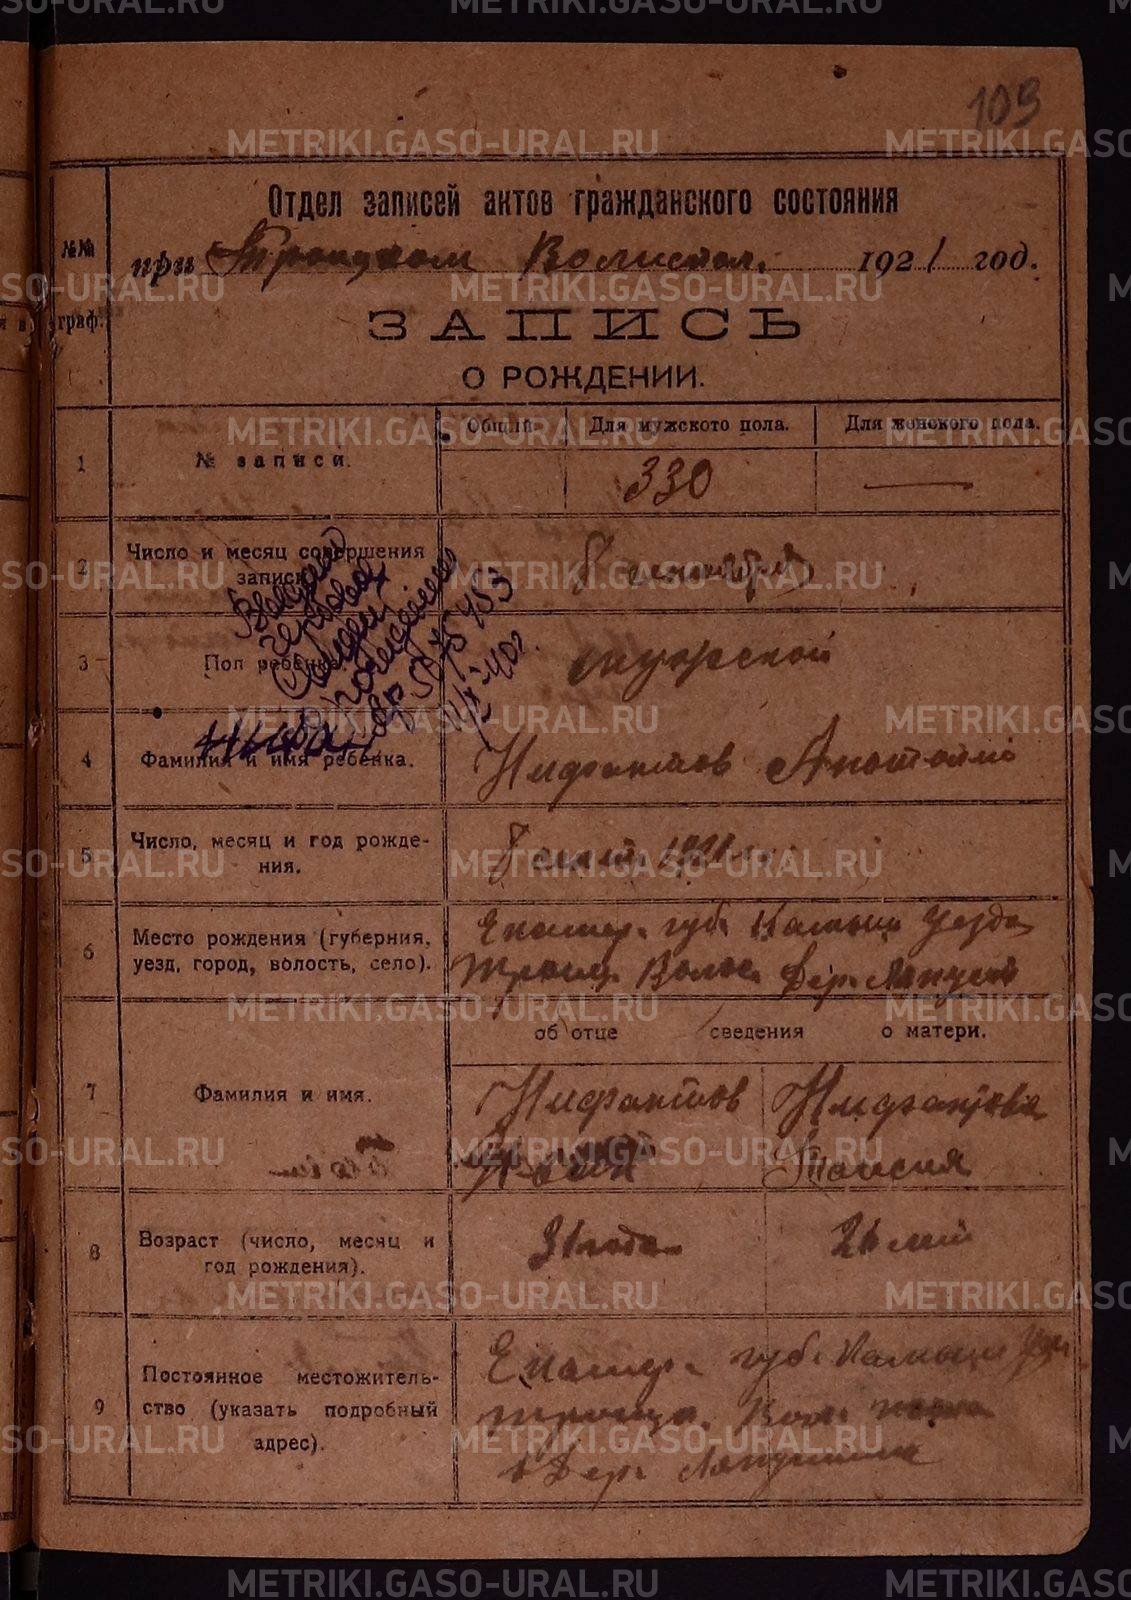 109
Отдел записей актов гражданского состояния
при Троицком Волисполк. 1921 год.
№№ граф.
ЗАПИСЬ
О РОЖДЕНИИ.
Общий. Для мужского пола. Для женского пола.
1 № записи. 330 —
2 Число и месяц совершения записи. 8 сентября
3 Пол ребенка. мужской
4 Фамилия и имя ребенка. Нифантов Анатолий
5 Число, месяц и год рожде-
ния. 1921 г.
6 Место рождения (губерния,
уезд, город, волость, село). Екатер. губ. Камышл Уезда
Троиц. Волос. Дер.
об отце сведения о матери.
7 Фамилия и имя. Нифантов Нифантова
Таисия
8 Возраст (число, месяц и
год рождения). 31 года 26 лет
9 Постоянное местожитель-
ство (указать подробный
адрес). Екатер. губ. Камышл
Троиц. Вол.
в Дер.
METRIKI.GASO-URAL.RU